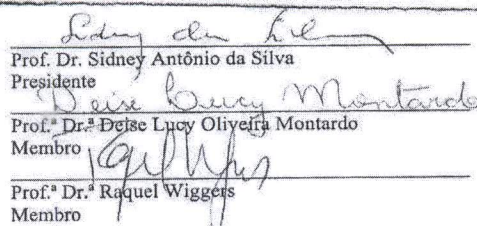 Prof. Dr. Sidney Antônio da Silva
Presidente
Deise Lucy Montardo
Prof.ª Dr.ª Deise Lucy Oliveira Montardo
Membro
Prof.ª Dr.ª Raquel Wiggers
Membro